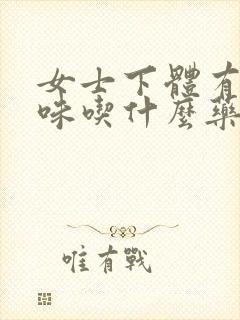 女士下體有
味喫什麼藥
唯有戰